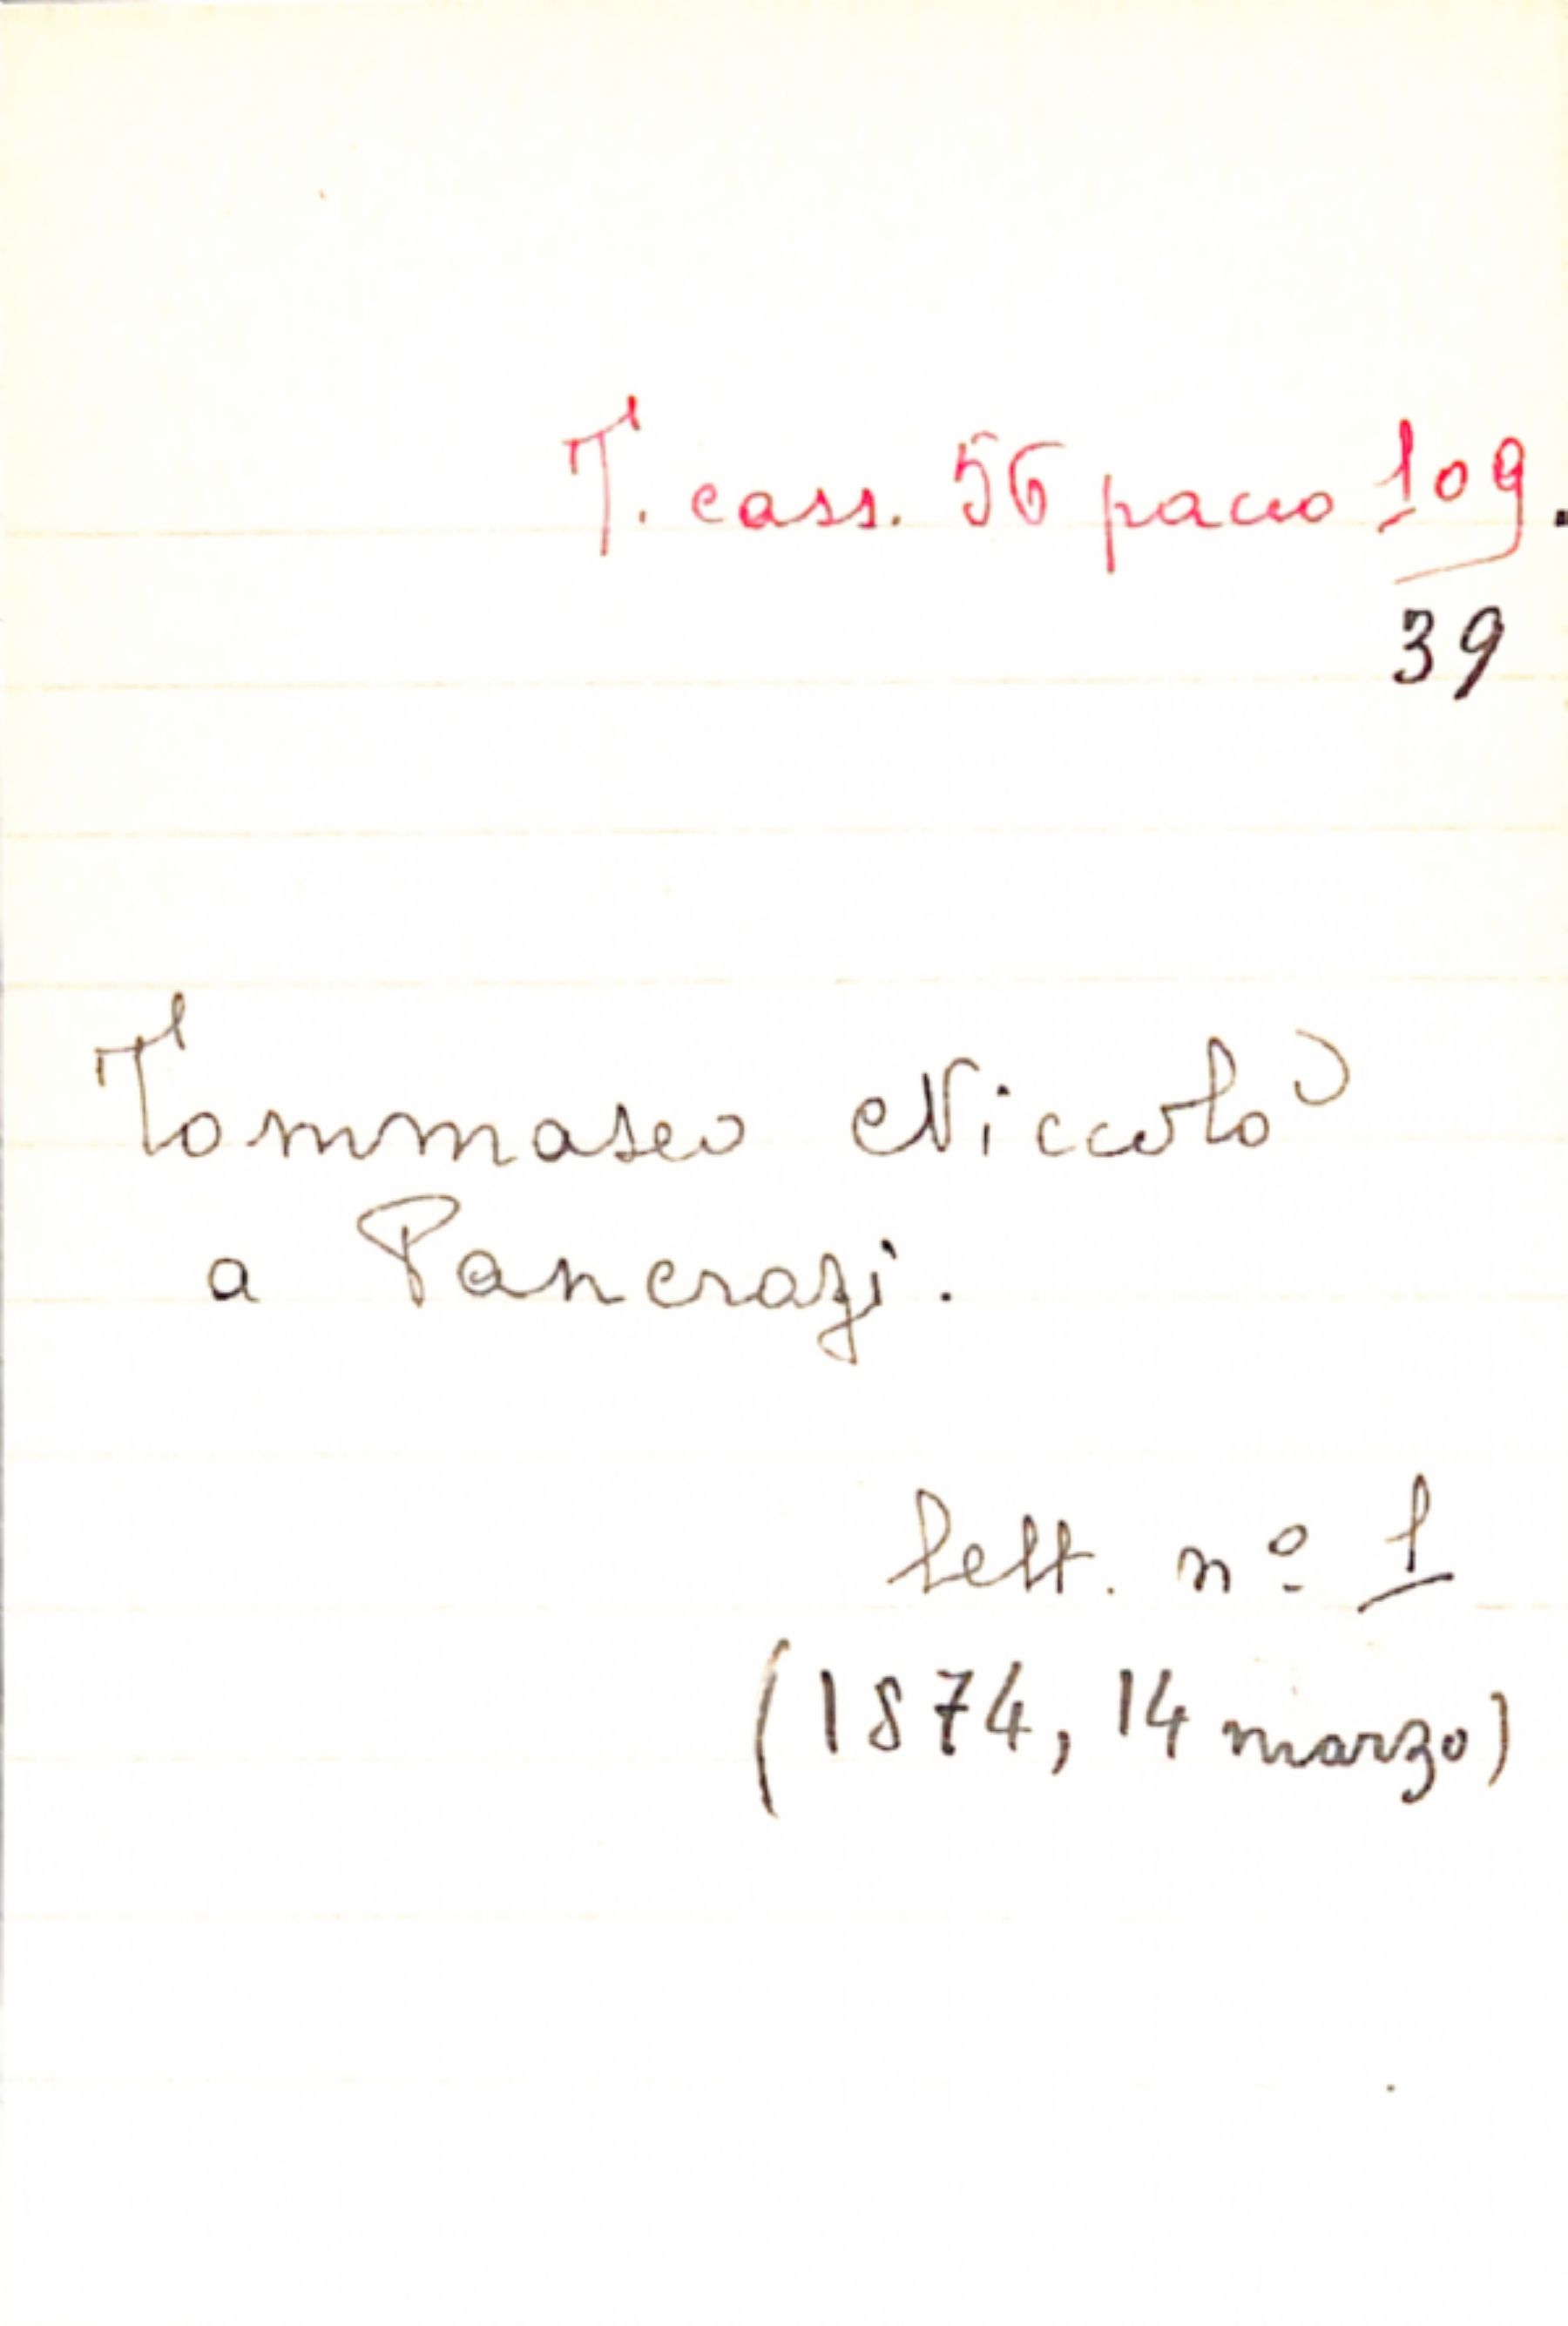 T. cass. 56 pacco 109.
39
Tommaseo Niccolò
a Pancrazi.
lett. nº 1
(1874, 14 marzo)